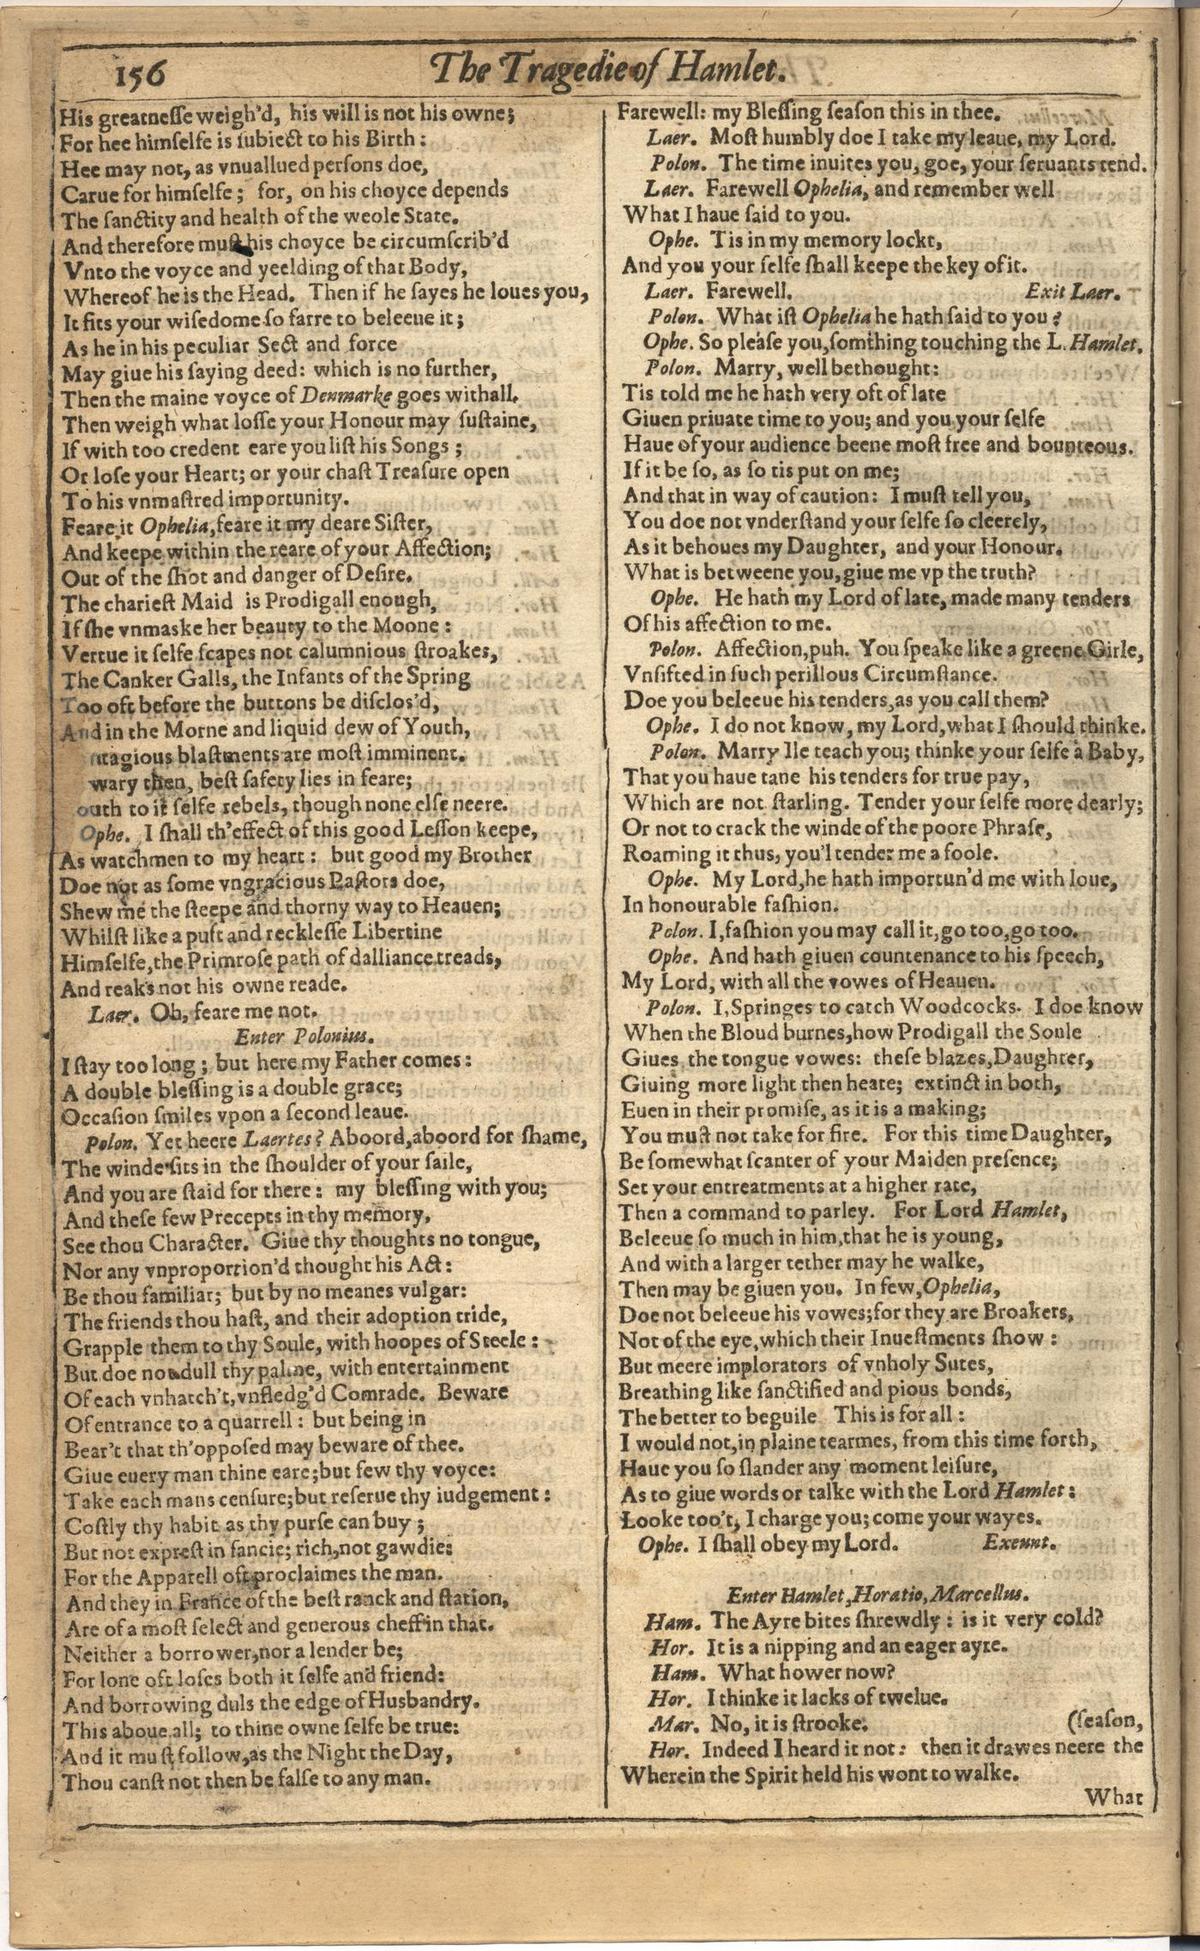 156
The Tragedie of Hamlet.
His greatnesse weigh'd, his will is not his owne;
For hee himselfe is subiect to his Birth:
Hee may not, as vnuallued persons doe,
Carue for himselfe; for, on his choyce depends
The sanctity and health of the weole State.
And therefore must his choyce be circumscrib'd
Vnto the voyce and yeelding of that Body,
Whereof he is the Head. Then if he sayes he loues you,
It fits your wisedome so farre to beleeue it;
As he in his peculiar Sect and force
May giue his saying deed: which is no further,
Then the maine voyce of Denmarke goes withall.
Then weigh what losse your Honour may sustaine,
If with too credent eare you list his Songs;
Or lose your Heart; or your chast Treasure open
To his vnmastred importunity.
Feare it Ophelia, feare it my deare Sister,
And keepe within the reare of your Affection;
Out of the shot and danger of Desire.
The chariest Maid is Prodigall enough,
If she vnmaske her beauty to the Moone:
Vertue it selfe scapes not calumnious stroakes,
The Canker Galls, the Infants of the Spring
Too oft before the buttons be disclos'd,
And in the Morne and liquid dew of Youth,
ntagious blastments are most imminent.
wary then, best safety lies in feare;
outh to it selfe rebels, though none else neere.
Ophe. I shall th'effect of this good Lesson keepe,
As watchmen to my heart: but good my Brother
Doe not as some vngracious Pastors doe,
Shew me the steepe and thorny way to Heauen;
Whilst like a puft and recklesse Libertine
Himselfe, the Primrose path of dalliance treads,
And reaks not his owne reade.
Laer. Oh, feare me not.
Enter Polonius.
I stay too long; but here my Father comes:
A double blessing is a double grace;
Occasion smiles vpon a second leaue.
Polon. Yet heere Laertes? Aboord, aboord for shame,
The winde sits in the shoulder of your saile,
And you are staid for there: my blessing with you;
And these few Precepts in thy memory,
See thou Character. Giue thy thoughts no tongue,
Nor any vnproportion'd thought his Act:
Be thou familiar; but by no meanes vulgar:
The friends thou hast, and their adoption tride,
Grapple them to thy Soule, with hoopes of Steele:
But doe not dull thy palme, with entertainment
Of each vnhatch't, vnfledg'd Comrade. Beware
Of entrance to a quarrell: but being in
Bear't that th'opposed may beware of thee.
Giue euery man thine eare; but few thy voyce:
Take each mans censure; but reserue thy iudgement:
Costly thy habit as thy purse can buy;
But not exprest in fancie; rich, not gawdie:
For the Apparell oft proclaimes the man.
And they in France of the best ranck and station,
Are of a most select and generous cheff in that.
Neither a borrower, nor a lender be;
For lone oft loses both it selfe and friend:
And borrowing duls the edge of Husbandry.
This aboue all; to thine owne selfe be true:
And it must follow, as the Night the Day,
Thou canst not then be false to any man.
Farewell: my Blessing season this in thee.
Laer. Most humbly doe I take my leaue, my Lord.
Polon. The time inuites you, goe, your seruants tend.
Laer. Farewell Ophelia, and remember well
What I haue said to you.
Ophe. Tis in my memory lockt,
And you your selfe shall keepe the key of it.
Laer. Farewell. Exit Laer.
Polon. What ist Ophelia he hath said to you?
Ophe. So please you, somthing touching the L. Hamlet.
Polon. Marry, well bethought:
Tis told me he hath very oft of late
Giuen priuate time to you; and you your selfe
Haue of your audience beene most free and bounteous.
If it be so, as so tis put on me;
And that in way of caution: I must tell you,
You doe not vnderstand your selfe so cleerely,
As it behoues my Daughter, and your Honour.
What is betweene you, giue me vp the truth?
Ophe. He hath my Lord of late, made many tenders
Of his affection to me.
Polon. Affection, puh. You speake like a greene Girle,
Vnsifted in such perillous Circumstance.
Doe you beleeue his tenders, as you call them?
Ophe. I do not know, my Lord, what I should thinke.
Polon. Marry Ile teach you; thinke your selfe a Baby,
That you haue tane his tenders for true pay,
Which are not starling. Tender your selfe more dearly;
Or not to crack the winde of the poore Phrase,
Roaming it thus, you'l tender me a foole.
Ophe. My Lord, he hath importun'd me with loue,
In honourable fashion.
Polon. I, fashion you may call it, go too, go too.
Ophe. And hath giuen countenance to his speech,
My Lord, with all the vowes of Heauen.
Polon. I, Springes to catch Woodcocks. I doe know
When the Bloud burnes, how Prodigall the Soule
Giues the tongue vowes: these blazes, Daughter,
Giuing more light then heate; extinct in both,
Euen in their promise, as it is a making;
You must not take for fire. For this time Daughter,
Be somewhat scanter of your Maiden presence;
Set your entreatments at a higher rate,
Then a command to parley. For Lord Hamlet,
Beleeue so much in him, that he is young,
And with a larger tether may he walke,
Then may be giuen you. In few, Ophelia,
Doe not beleeue his vowes; for they are Broakers,
Not of the eye, which their Inuestments show:
But meere implorators of vnholy Sutes,
Breathing like sanctified and pious bonds,
The better to beguile This is for all:
I would not, in plaine tearmes, from this time forth,
Haue you so slander any moment leisure,
As to giue words or talke with the Lord Hamlet:
Looke too't, I charge you; come your wayes.
Ophe. I shall obey my Lord. Exeunt.
Enter Hamlet, Horatio, Marcellus.
Ham. The Ayre bites shrewdly: is it very cold?
Hor. It is a nipping and an eager ayre.
Ham. What hower now?
Hor. I thinke it lacks of twelue.
Mar. No, it is strooke. (season,
Hor. Indeed I heard it not: then it drawes neere the
Wherein the Spirit held his wont to walke.
What